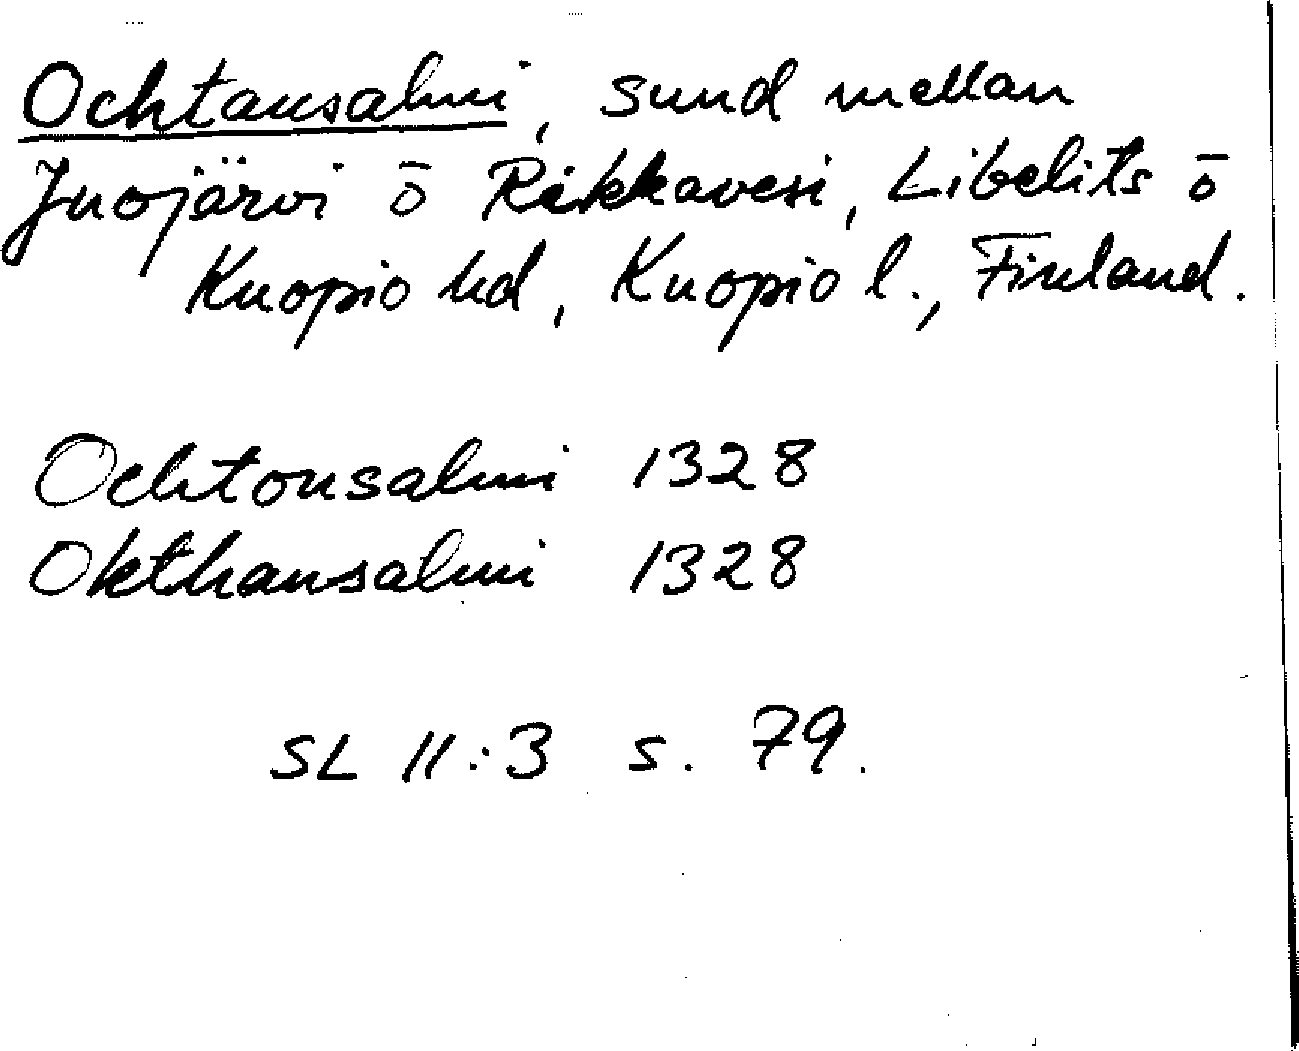 Ochtansalmi, sund mellan
Juojärvi ō Rikkavesi, Libelits ō
Kuopio hd, Kuopio l., Finland.
Ochtonsalmi 1328
Okthansalmi 1328
SL 11:3 s. 79.